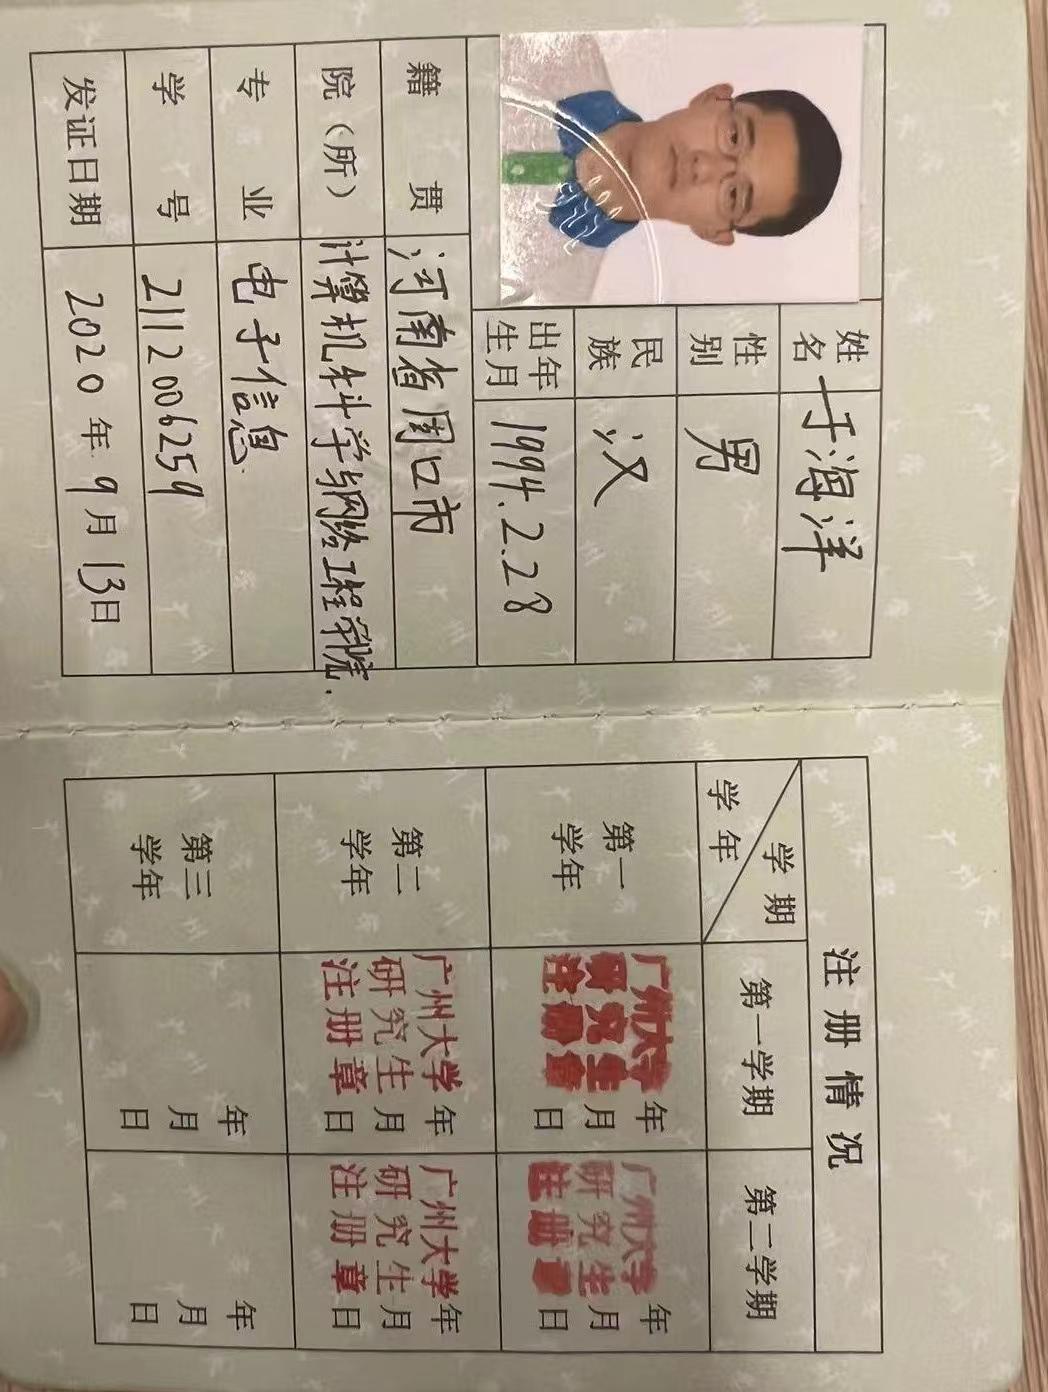 姓名 于海洋
性别 男
民族 汉
出生年月 1994.2.28
籍贯 河南省周口市
院（所） 计算机科学与网络工程学院.
专业 电子信息
学号 2112006259
发证日期 2020年9月13日
注册情况
学期 第一学期 第二学期
学年
第一学年
广州大学
研究生
注册章
年月日
广州大学
研究生
注册章
年月日
第二学年
广州大学
研究生
注册章
年月日
广州大学
研究生
注册章
年月日
第三学年
年月日
年月日